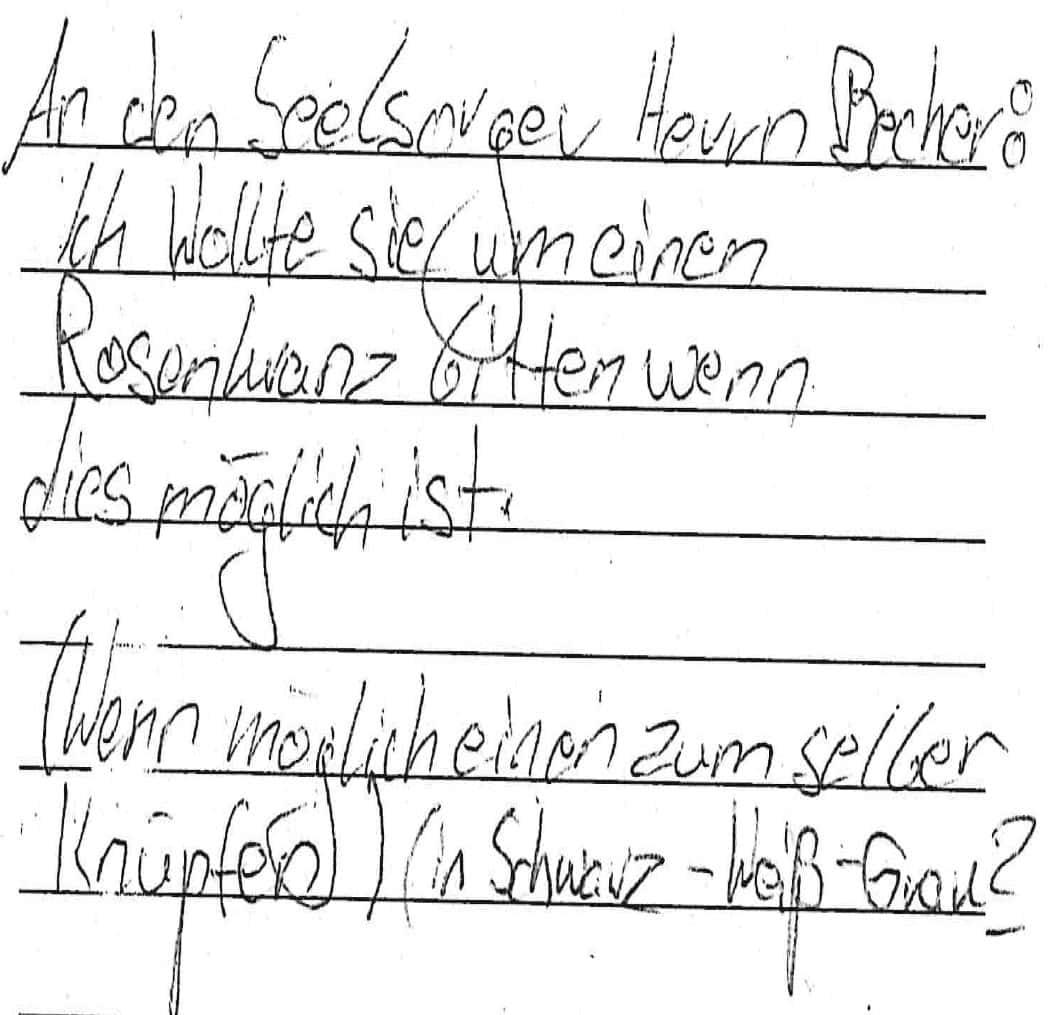 An den Seelsorger Herrn Becher:
Ich Wollte sie um einen
Rosenkranz bitten wenn
dies möglich ist.
(Wenn möglich einen zum selber
Knüpfen) (in Schwarz-Weiß-Grau?